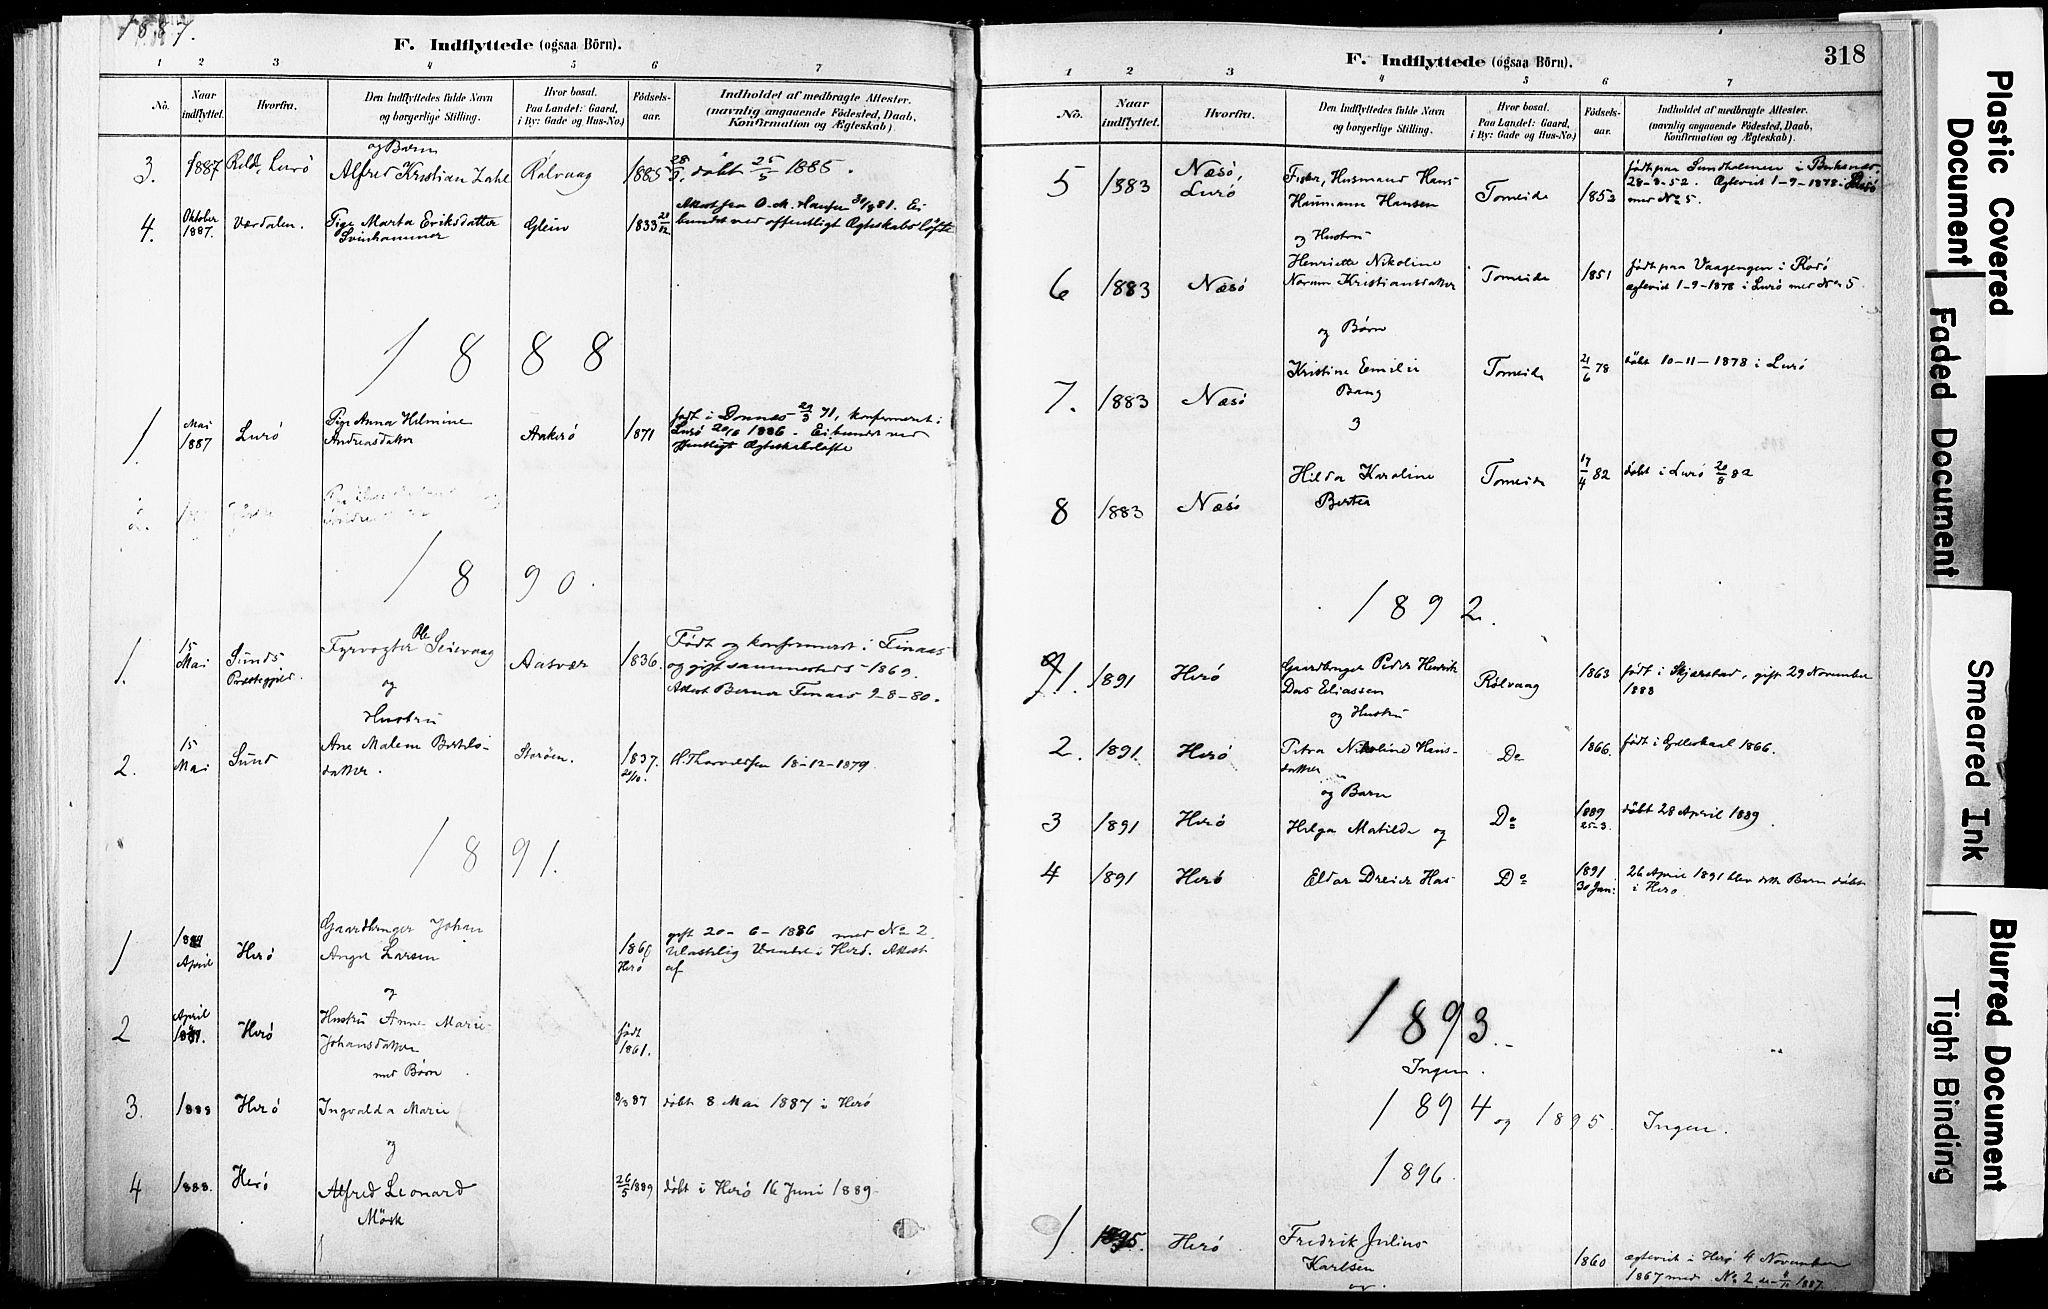 1887.
F. Indflyttede (ogsaa Börn).
1 2 3 4 5 6 7
No. Naar indflyttet. Hvorfra. Den Indflyttedes fulde Navn og borgerlige Stilling. Hvor bosat. Paa Landet: Gaard, i By: Gade og Hus-No.) Födsels-aar. Indholdet af medbragte Attester. (navnlig angaaende Födested, Daab, Konfirmation og Ægteskab).
og Barn
3. 1887 Lurö Alfred Kristian Zahl Rölvaag 1885 28/3, döbt 25/5 1885.
4. Oktober 1887. Værdalen. Pige Marta Eriksdatter Svinhammer Glein 1833 Attest fra O. M. Hansen 81. Ei
bundet ved offentligt Ægteskabslöfte
1888
1. Mai 1887 Lurö Pige Anna Helmine Andreasdatter Aakerö 1871 født i Dønnes 29/3 71, konfirmeret i
Lurö 1886. Ei bundet ved
offentligt Ægteskabslöfte
1890.
1. 15 Mai Sunds Præstegjeld. Fyrvogter Ole Seievaag Aasvær 1836. Født og konfirmeret i Finaas
og gift sammesteds 1869.
Attest Berner Finaas 9-8-80.
og
Hustru
2. 15 Mai Sund Ane Malene datter. Storöen. 1837. H. Thorvaldsen 18-12-1879.
1891.
1 April Herö Gaardbruger Johan Larsen 1860 Herö gift 20-6-1886 med No 2
i Herö. Attest
af
og
2 April Herö Hustru Anne Marie Johansdatter født 1861.
med Börn
3. 1888 Herö Ingvalda Marie 87 døbt 8 Mai 1887 i Herö
og
4 1888. Herö Alfred Leonard Mörk 26/5 1889 døbt i Herö 16 Juni 1889.
318
F. Indflyttede (ogsaa Börn).
1 2 3 4 5 6 7
No. Naar indflyttet. Hvorfra. Den Indflyttedes fulde Navn og borgerlige Stilling. Hvor bosat. Paa Landet: Gaard, i By: Gade og Hus-No.) Födsels-aar. Indholdet af medbragte Attester. (navnlig angaaende Födested, Daab, Konfirmation og Ægteskab).
5 1883 Næsö, Lurö Husmand Hans Haumann Hansen Tomeide 1852 født paa Sundholmen i Buksnes
28-3-52. Ægteviet 1-9-1878
med No 5.
og Hustru
6 1883 Næsö Henriette Nikoline Kristiansdatter Tomeide 1851 født paa Vaagengen i Rødö
ægteviet 1-9-1878 i Lurö med No 5.
og Børn
7. 1883 Næsö Kristine Emilie Bang Tomeide 21/6 78 døbt 10-11-1878 i Lurö
8 1883 Næsö Hilda Karoline Tomeide 17/4 82 døbt i Lurö 20/8 82
1892.
1. 1891 Herö Gaardbruger Peder Henrik Das Eliassen Rølvaag 1863 født i Skjerstad, gift 29 November
1888
og Hustru
2. 1891. Herö Petra Nikoline Hansdatter Do 1866. født i Gilleskaal 1866.
og Barn
3 1891 Herö Helga Matilde og Do 1889 25-3. døbt 28 April 1889.
4 1891 Herö Eldar Dreier Has Do 1891 30 Jan: 26 April 1891 blev dette Barn døbt
i Herö
1893.
Ingen.
1894 og 1895. Ingen.
1896.
1. 1895. Herö Fredrik Julius Karlsen 1860 ægteviet i Herö 4 November
1867 med No 2 1887.
Plastic Covered Document
Faded Document
Smeared Ink
Blurred Document
Tight Binding